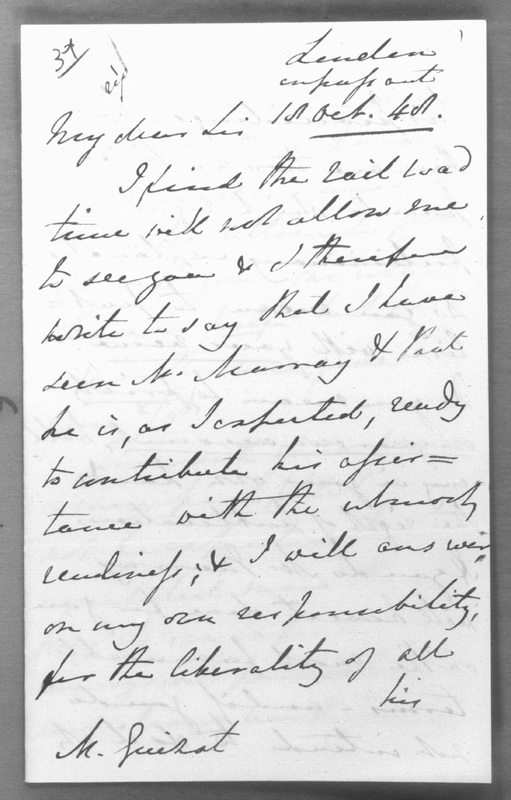 3d/
London
en passant
18 Oct. 48.
My dear Sir
I find the rail road
time will not allow me
to see you & I therefore
write to say that I have
seen Mr. Murray & that
he is, as I expected, ready
to contribute his assis=
tance with the utmost
readiness; & I will answer
on my own responsibility,
for the liberality of all
his
M. Guizot